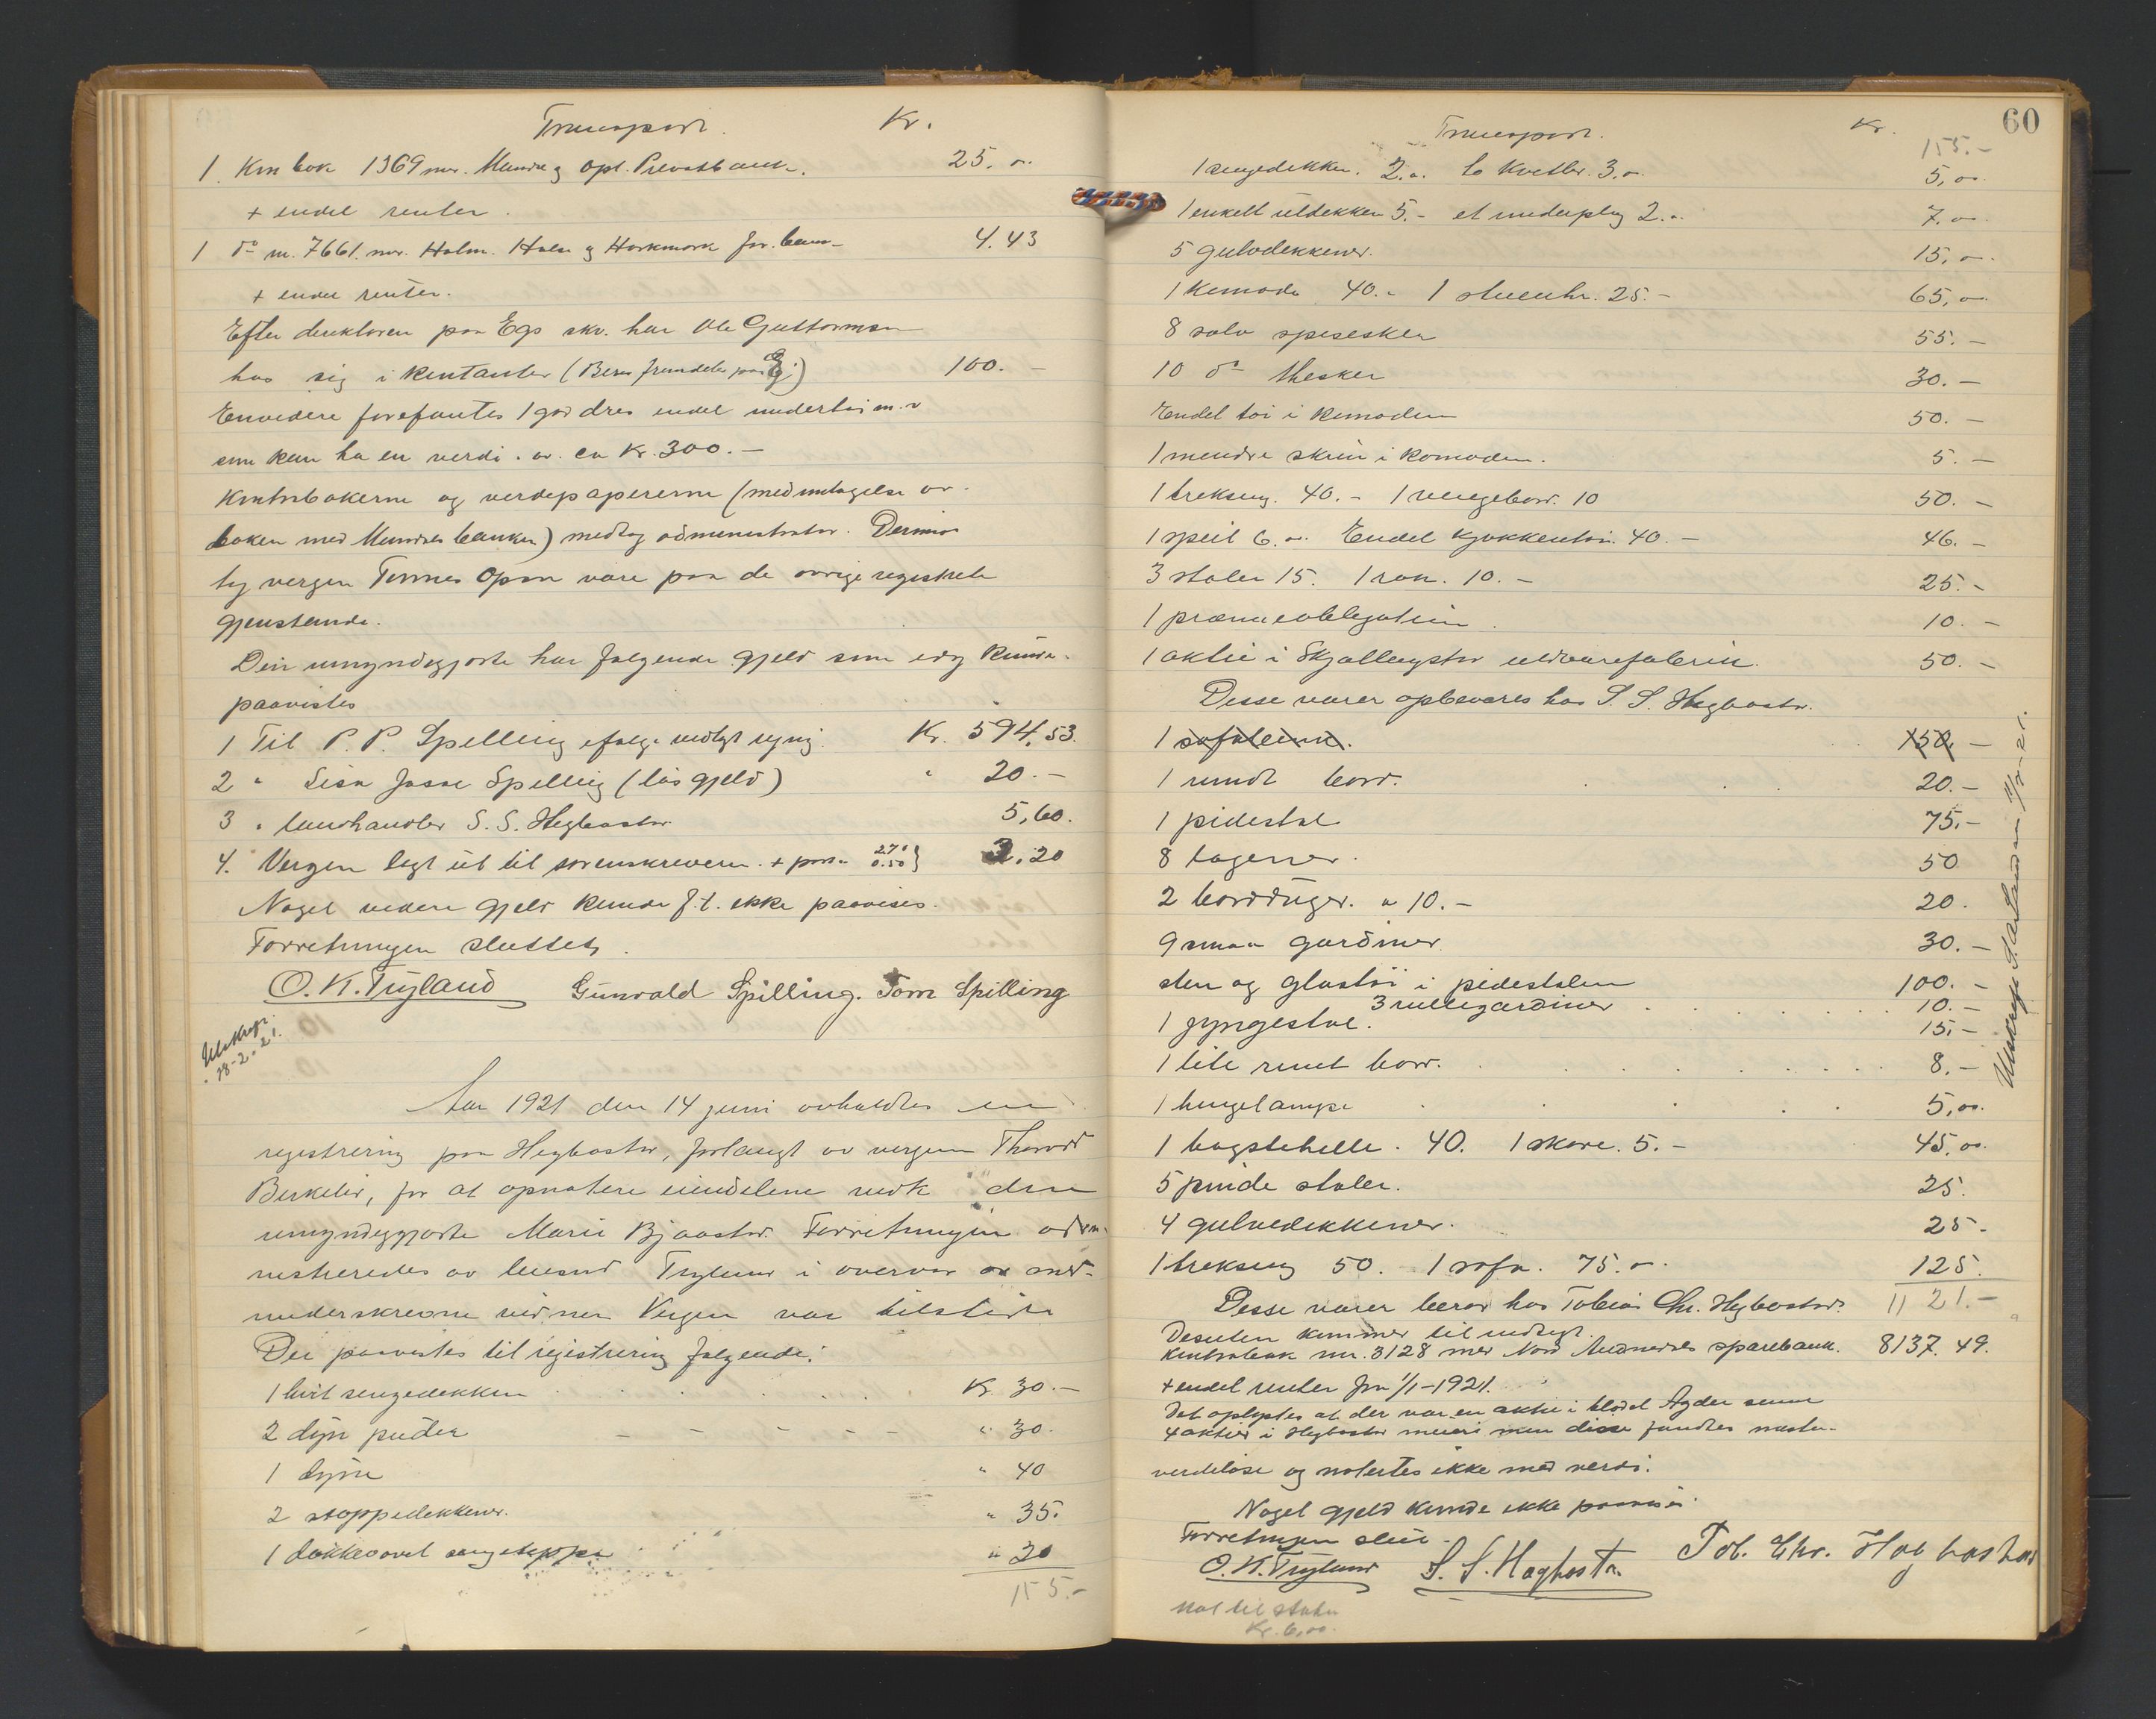 Transport. Kr.
1. Kon bok 1369 mr. Mandal og opl. Privatbank. 25. -
+ endel renter.
1 do m. 7661. mr. Holm. Halse og Harkmark for. bank 4.43
+ endel renter.
Efter direktøren paa Egs skr. har Ole Guttormsen
hos sig i kontanter (Beror fremdeles paa Eg.) 100. -
Envidere forefantes 1 god dres endel undertøi m.v
som kan ha en verdi. av. ca Kr. 300. -
Kontrabøkerne og verdipapirerne (med undtagelse av.
boken med Mandals banken) medtog administrator. Derimot
tog vergen Tønnes Opsa vare paa de øvrige registrerte
gjenstande.
Den umyndiggjorte har følgende gjeld som idag kunde
paavistes
1 Til P. P. Spilling ifølge vedlagt regning Kr. 594,53.
2 " Sisa Josse Spilling (løs gjeld) " 20. -
3 " landhandler S. S. Hegbostad 5,60.
4. Vergen lagt ut til sorenskriveren. + porto 2.70 0.50} 3,20
Noget videre gjeld kunde f.t. ikke paavises.
Forretningen sluttet
O. K. Tryland Gunvald Spilling. Tom Spilling
Utskrift.
18-2-21.
Aar 1921 den 14 juni avholdtes en
registrering paa Hegbostad, forlangt av vergen Thorvald
Birkeli, for at opnotere eiendelene vedk den
umyndiggjorte Marie Bjaastad. Forretningen admi-
nistreredes av lensmd Tryland i overvær av med-
underskrevne vidner Vergen var tilstede
Der paavistes til registrering følgende:
1 hvit sengedekken Kr 30. -
2 dyn puder " 30.
1 dyne " 40
2 stoppedekkener. " 35.
1 dokkeovet sengeteppe " 20
155. -
60
Transport. Kr. 155. -
1 sengedekken. 2. - to Kvetler. 3. - 5,00
1 enkelt uldekken 5. - et underplag 2. - 7,00
5 gulvdekkener. 15,00
1 Komode 40. - 1 stueuhr. 25. - 65,00
8 sølv spiseskeer 55. -
10 do theskeer 30. -
Endel tøi i Komoden 50. -
1 mindre skrin i komoden. 5. -
1 trekseng. 40. - 1 sengebord. 10 50. -
1 speil 6. - Endel kjøkkentøi. 40. - 46. -
3 stoler 15. 1 rok. 10. - 25. -
1 præmieobligation 10. -
1 aktie i Skjollegstad uldvarefabrik. 50. -
Disse varer opbevares hos S. S. Hegbostad.
1 sofateine. 150, -
1 rundt bord. 20. -
1 pidestal 75, -
8 lagener. 50
2 bordduger. a 10. - 20.
9 smaa gardiner. 30. -
sten og glastøi i pidestalen 100. -
3 rullegardiner 10. -
1 gyngestol. 15, -
1 lite rundt bord. 8. -
1 hengelampe 5,00
1 bagstehelle. 40. 1 skore. 5. - 45,00
5 pinde stoler. 25.
4 gulvdekkener. 25.
1 trekseng 50. 1 sofa. 75. - 125.
Disse varer beror hos Tobias Chr. Hegbostad. 1121. -
Desuten kommer til indtegt
Kontrabok nr. 3128 med Nord Audnedals sparebank. 8137.49.
+ endel renter fra 1/1-1921.
Det oplystes at der var en aktie i bladet Agder samt
4 aktier i Hegbostad meieri men disse fandtes næsten
verdiløse og notertes ikke med verdi.
Noget gjeld kunde ikke paavises
Forretningen slut.
O. K. Tryland S. S. Hægbostad. Tob. Chr. Hægbostad
Not til staten
Kr. 6,00.